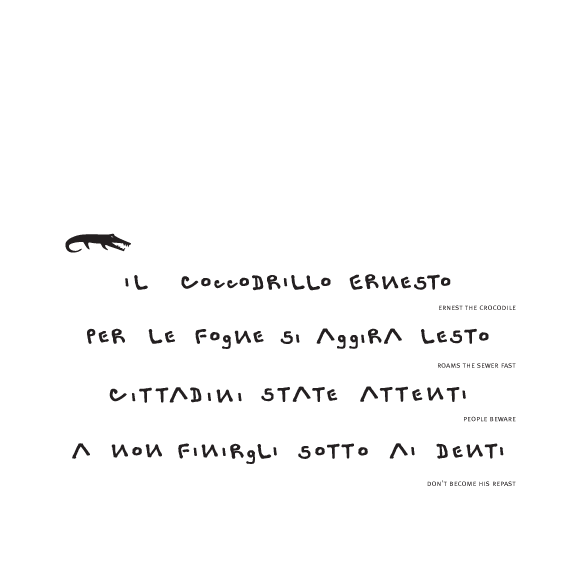 IL COCCODRILLO ERNESTO
ERNEST THE CROCODILE
PER LE FOGNE SI AGGIRA LESTO
ROAMS THE SEWER FAST
CITTADINI STATE ATTENTI
PEOPLE BEWARE
A NON FINIRGLI SOTTO AI DENTI
DON'T BECOME HIS REPAST